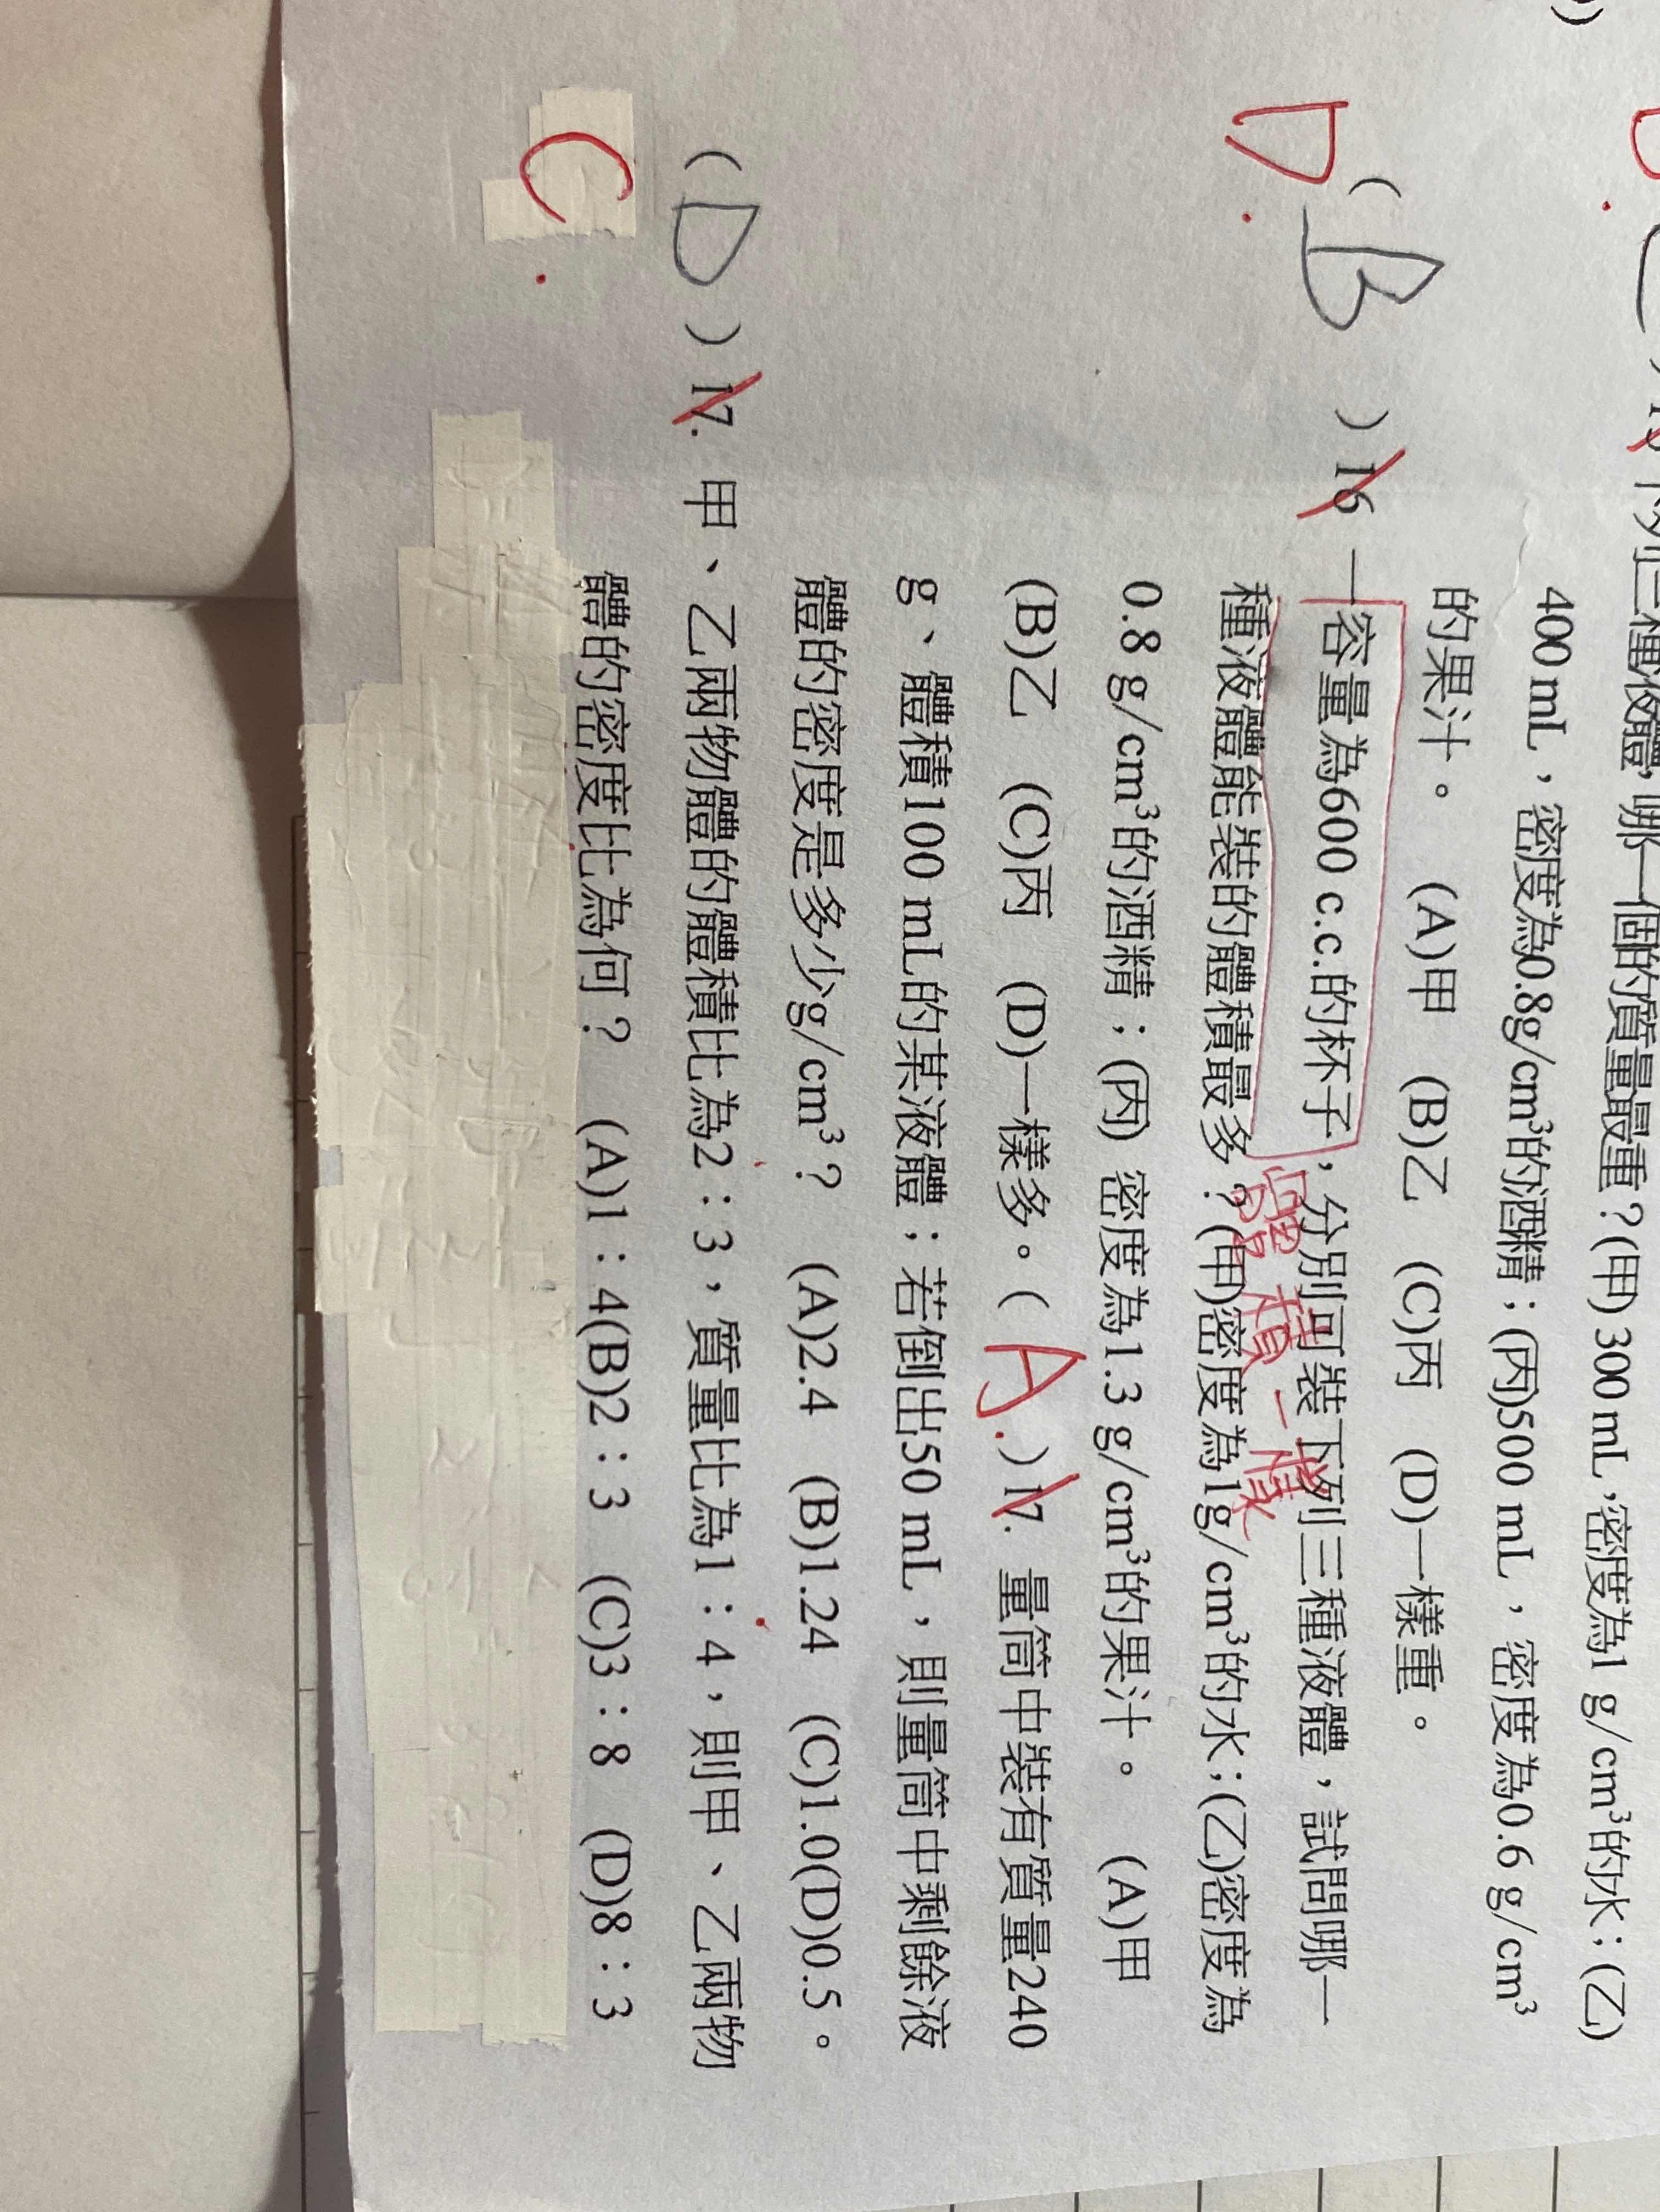 下列三種液體,哪一個的質量最重？(甲) 300 mL,密度為1 g/cm³的水；(乙)
400 mL，密度為0.8g/cm³的酒精；(丙)500 mL，密度為0.6 g/cm³
的果汁。 (A)甲 (B)乙 (C)丙 (D)一樣重。
D.
( B ) 16 一容量為600 c.c.的杯子，分別可裝下列三種液體，試問哪一
體積一樣
種液體能裝的體積最多？(甲)密度為1g/cm³的水；(乙)密度為
0.8 g/cm³的酒精；(丙) 密度為1.3 g/cm³的果汁。 (A)甲
(B)乙 (C)丙 (D)一樣多。( A. ) 17. 量筒中裝有質量240
g、體積100 mL的某液體；若倒出50 mL，則量筒中剩餘液
體的密度是多少g/cm³？ (A)2.4 (B)1.24 (C)1.0(D)0.5。
( D ) 17. 甲、乙兩物體的體積比為2：3，質量比為1：4，則甲、乙兩物
C.
體的密度比為何？ (A)1：4(B)2：3 (C)3：8 (D)8：3